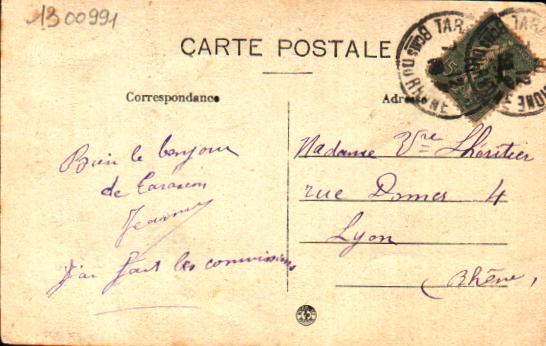 1300991
CARTE POSTALE
Correspondance
Adresse
Bien le bonjour
de Tarascon
Jeanne
J'ai fait les commissions
Madame Vve Lhéritier
rue Dumas 4
Lyon
Rhône,
TAR
BCHES DU RHONE